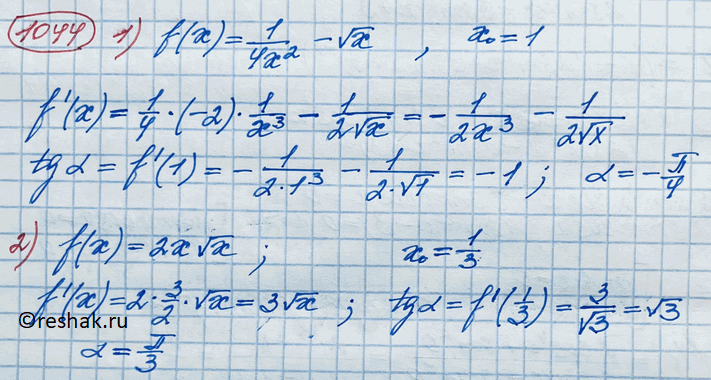 1044 1) f(x) = 1/(4x²) − √x , x₀ = 1
f'(x) = 1/4 · (−2) · 1/x³ − 1/(2√x) = − 1/(2x³) − 1/(2√x)
tg α = f'(1) = − 1/(2·1³) − 1/(2·√1) = −1 ; α = − π/4
2) f(x) = 2x √x ; x₀ = 1/3
f'(x) = 2 · 3/2 · √x = 3√x ; tg α = f'(1/3) = 3/√3 = √3
©reshak.ru
α = π/3